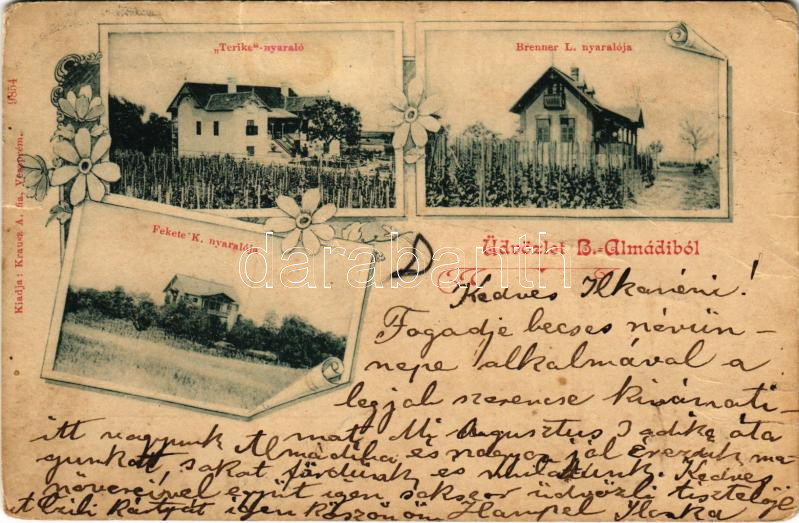 „Terike"-nyaraló
Brenner L. nyaralója
Fekete K. nyaralója
Kiadja: Krausz A. fia, Veszprém.
9854
Üdvözlet B.-Almádiból
darabanth
Kedves Ilkanéni!
Fogadja becses névün-
nepe alkalmával a
legjob szerencse kivánati-
itt vagyunk Almádiba Mi Augusztus 3 adika óta
és nagyon jól érezzük ma-
gunkat, sokat fürdünk és mulatunk. Kedves
növéreivel együt igen sokszor üdvözli tisztelője
A Czili kártyát igen köszönöm Hampel Ilonka